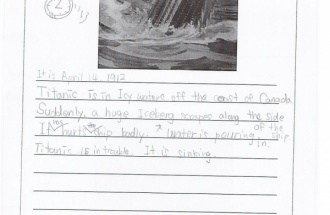 It is April 14, 1912
Titanic is in Icy waters off the coast of Canada.
Suddenly, a huge Iceberg scrapes along the side of the ship
It hurt the ship badly. Water is pouring in.
Titanic is in trouble. It is sinking.